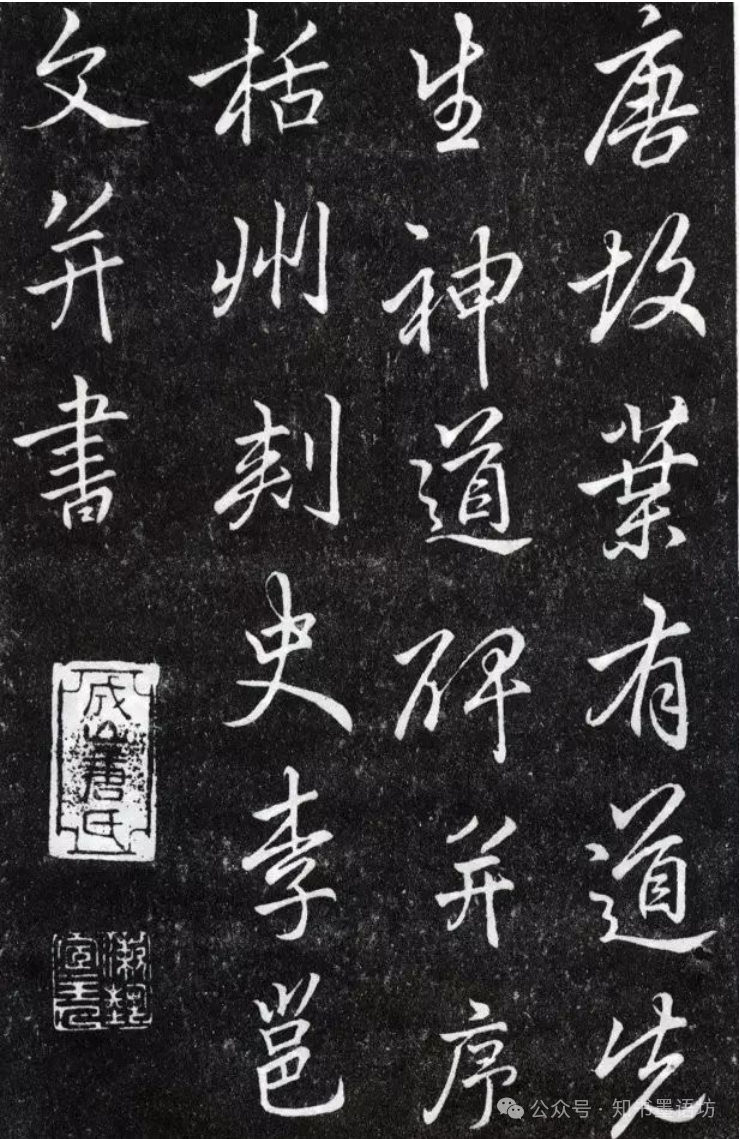 唐故葉有道先
生神道碑并序
栝州刺史李邕
文并書
成山唐氏
公众号·知书墨语坊